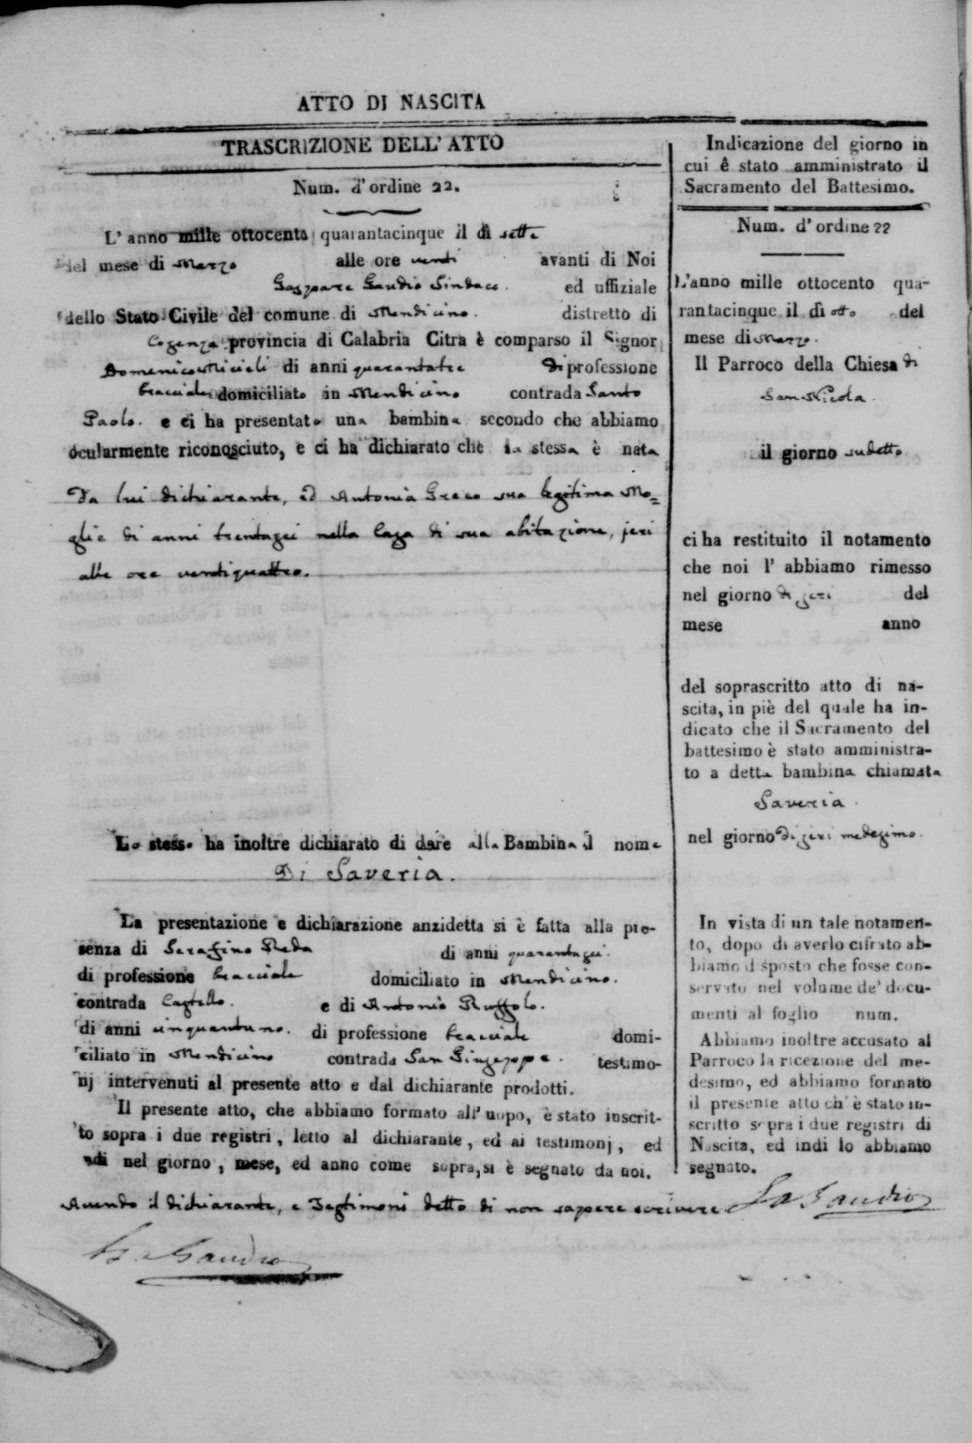 ATTO DI NASCITA
TRASCRIZIONE DELL' ATTO
Num. d' ordine 22.
L' anno mille ottocento quarantacinque il dì sette
del mese di Marzo alle ore venti avanti di Noi
Gaspare Gaudio Sindaco. ed uffiziale
dello Stato Civile del comune di Mendicino. distretto di
Cosenza provincia di Calabria Citra è comparso il Signor
Domenico Micieli di anni quarantatre di professione
bracciale domiciliato in Mendicino contrada Santo
Paolo. e ci ha presentato una bambina secondo che abbiamo
ocularmente riconosciuto, e ci ha dichiarato che la stessa è nata
Da lui dichiarante, ed Antonia Greco sua legitima Mo=
glie di anni trentasei nella Casa di sua abitazione, jeri
alle ore ventiquattro.
Lo stesso ha inoltre dichiarato di dare alla Bambina il nome
Di Saveria.
La presentazione e dichiarazione anzidetta si è fatta alla pre-
senza di Serafino Reda di anni quarantasei
di professione bracciale domiciliato in Mendicino.
contrada Castello. e di Antonio Ruffolo.
di anni cinquantuno. di professione bracciale domi-
ciliato in Mendicino contrada San Giuseppe. testimo-
nj intervenuti al presente atto e dal dichiarante prodotti.
Il presente atto, che abbiamo formato all' uopo, è stato inscrit-
to sopra i due registri, letto al dichiarante, ed ai testimonj, ed
indi nel giorno, mese, ed anno come sopra, si è segnato da noi.
Avendo il dichiarante, e Testimoni detto di non sapere scrivere
Gaudio
Indicazione del giorno in
cui è stato amministrato il
Sacramento del Battesimo.
Num. d' ordine 22
L'anno mille ottocento qua-
rantacinque il dì otto del
mese di Marzo.
Il Parroco della Chiesa di
San Nicola.
il giorno sudetto
ci ha restituito il notamento
che noi l' abbiamo rimesso
nel giorno di jeri del
mese anno
del soprascritto atto di na-
scita, in piè del quale ha in-
dicato che il Sacramento del
battesimo è stato amministra-
to a detta bambina chiamata
Saveria.
nel giorno di jeri medesimo.
In vista di un tale notamen-
to, dopo di averlo cifrato ab-
biamo disposto che fosse con-
servato nel volume de' docu-
menti al foglio num.
Abbiamo inoltre accusato al
Parroco la ricezione del me-
desimo, ed abbiamo formato
il presente atto ch' è stato in-
scritto sopra i due registri di
Nascita, ed indi lo abbiamo
segnato.
Gaudio